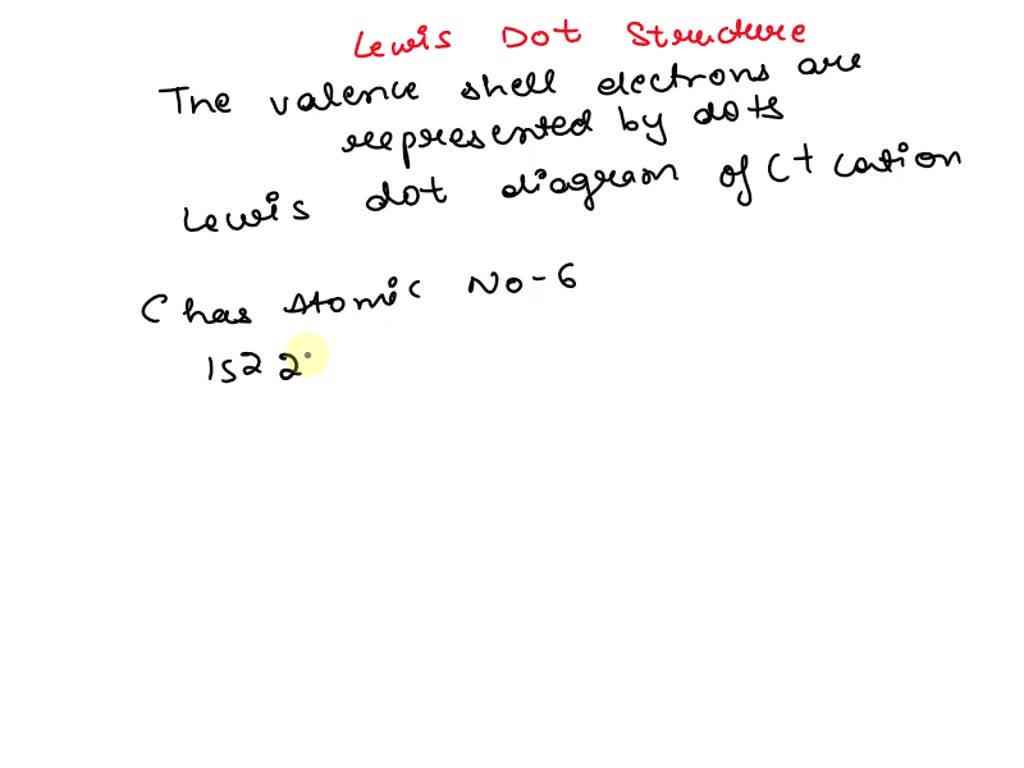 Lewis Dot Structure
The valence shell electrons are
represented by dots
Lewis dot diagram of C+ cation
C has Atomic No-6
1s2 2